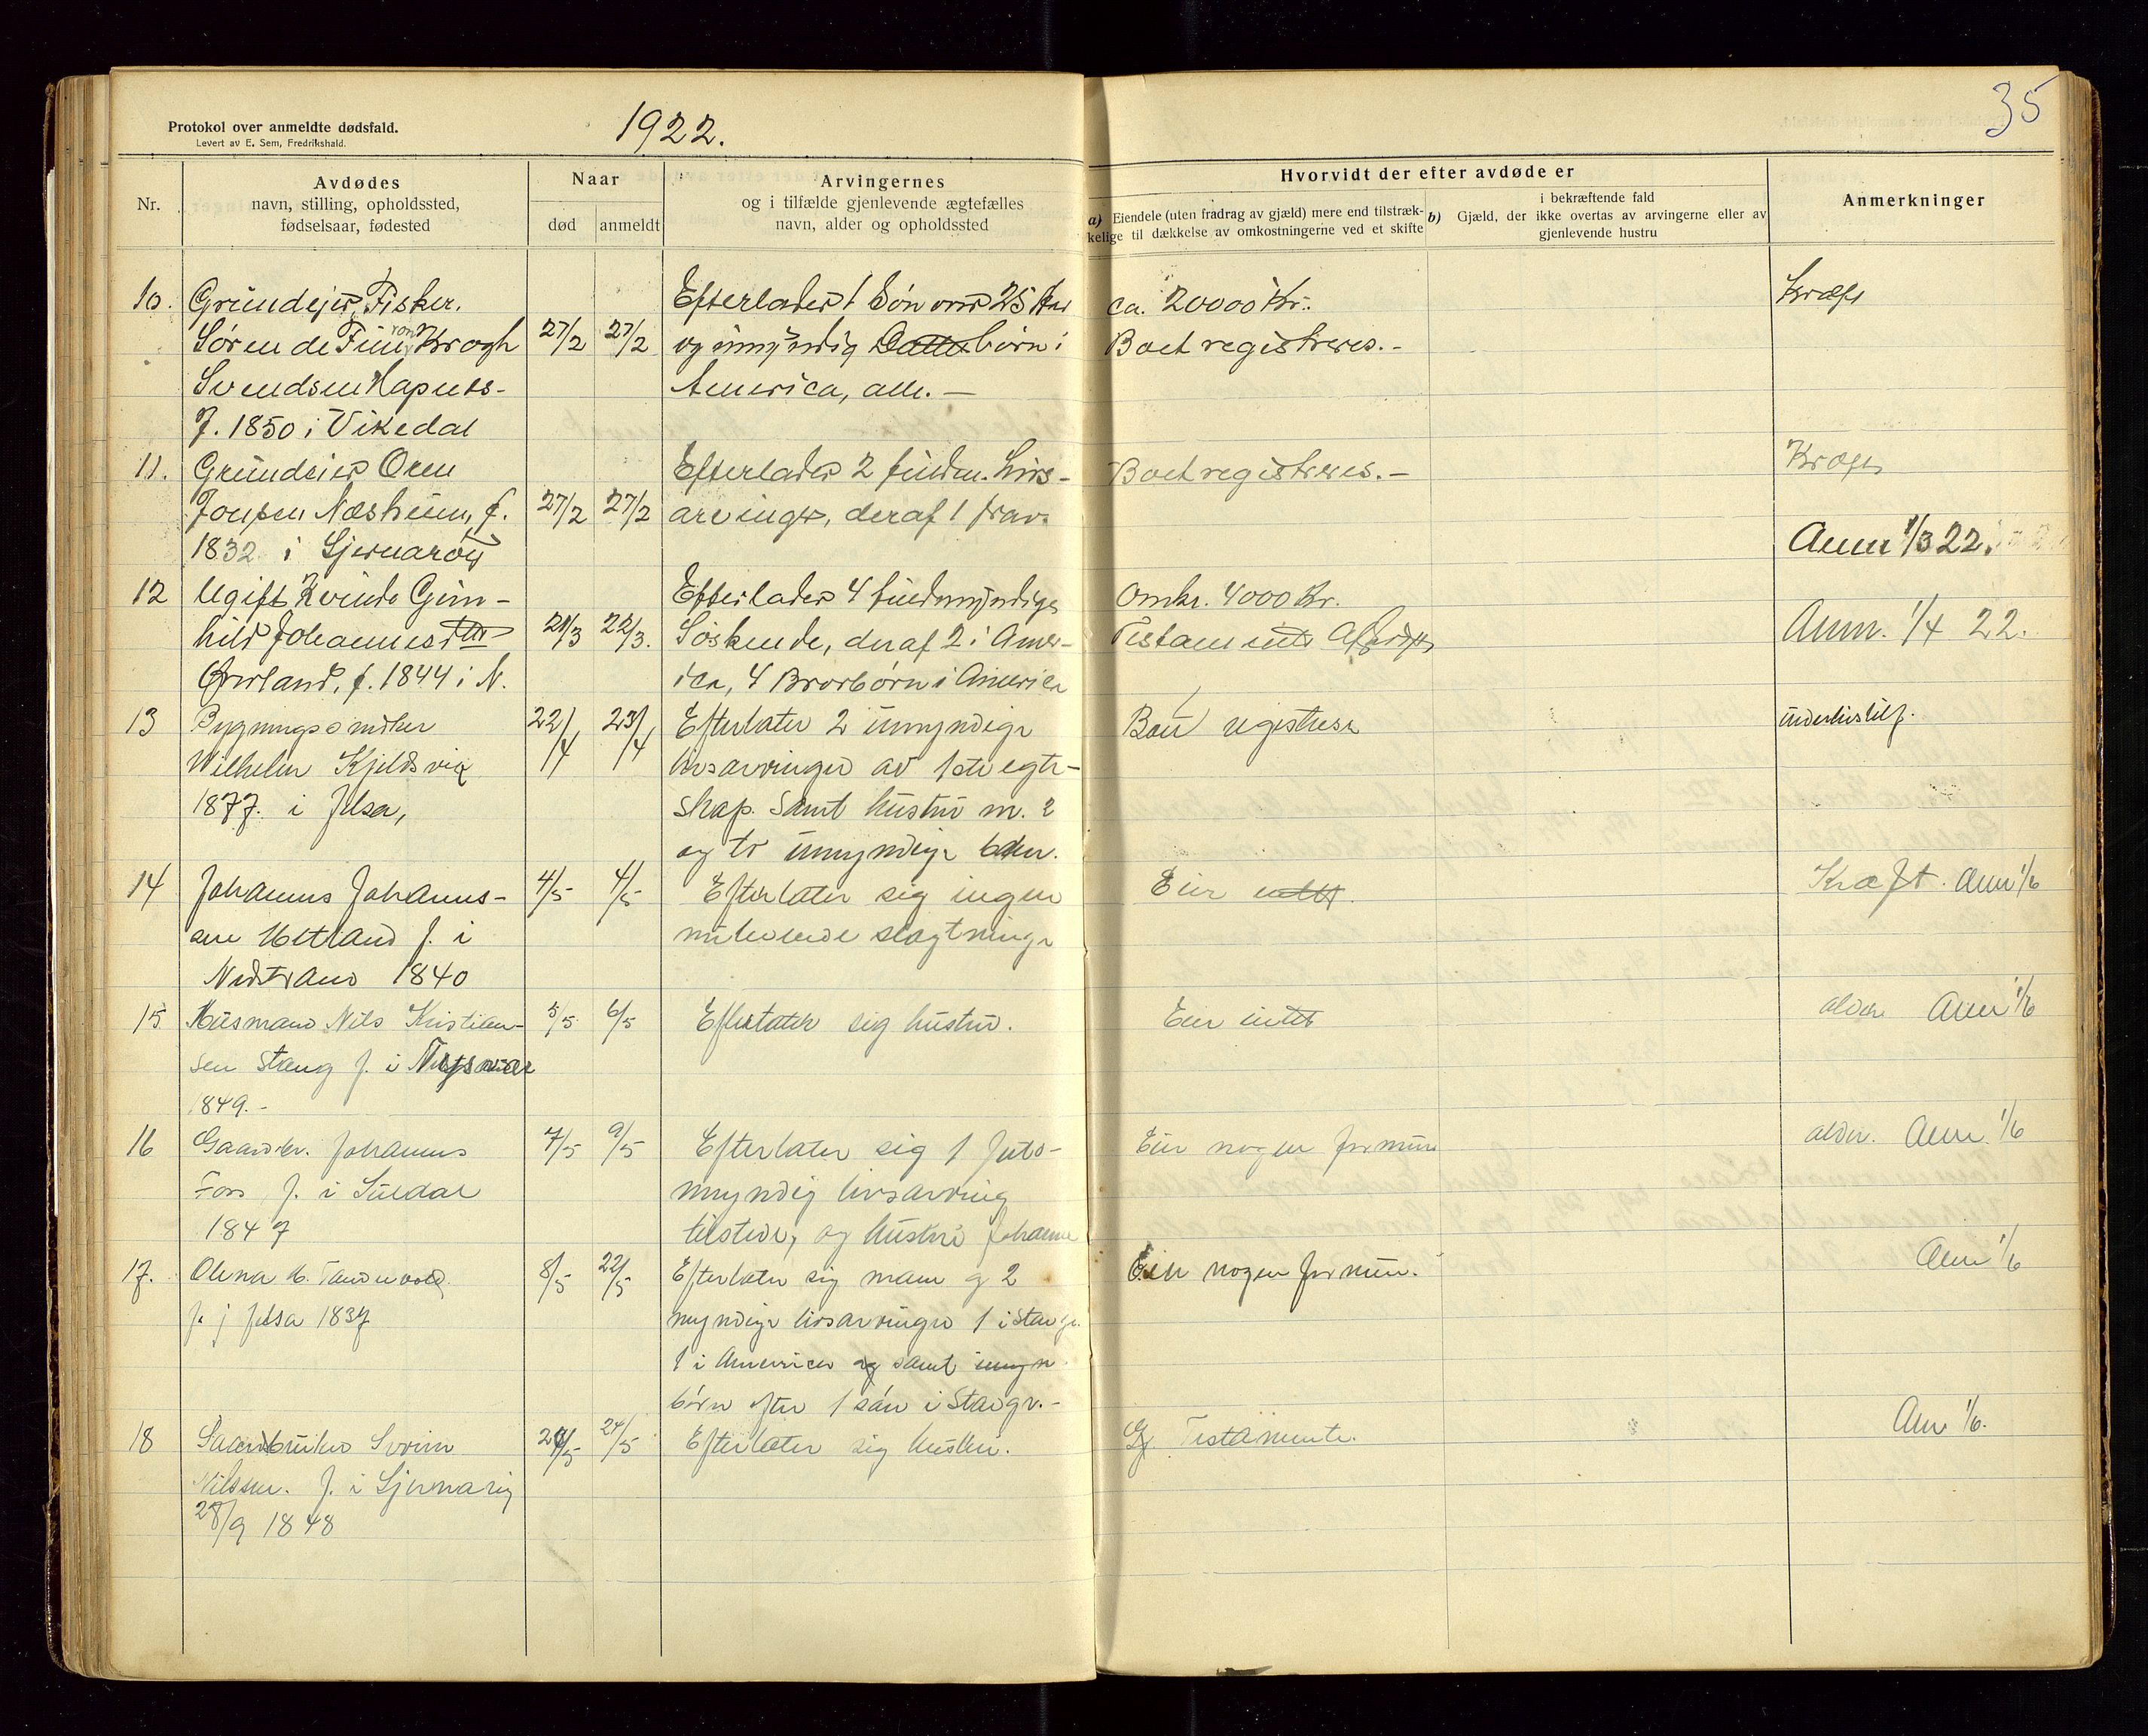 35
Protokol over anmeldte dødsfald.
Levert av E. Sem, Fredrikshald.
1922.
Nr.
Avdødes
navn, stilling, opholdssted,
fødselsaar, fødested
Naar
død
anmeldt
Arvingernes
og i tilfælde gjenlevende ægtefælles
navn, alder og opholdssted
Hvorvidt der efter avdøde er
a) Eiendele (uten fradrag av gjæld) mere end tilstræk-
kelige til dækkelse av omkostningerne ved et skifte
i bekræftende fald
b) Gjæld, der ikke overtas av arvingerne eller av
gjenlevende hustru
Anmerkninger
10. Grundejer, Fisker. Efterlader 1 Søn over 25 Aar ca. 20000 Kr.. Kræft
Søren de Fine von Krogh 27/2 27/2 og umyndig børn i Boet registreres.-
Svendsen America, alle.-
f. 1850 i Vikedal
11. Grundeier Oren Efterlader 2 fuldm. Livs- Boet registreres.-
Jonsen Næsheim, f. 27/2 27/2 arvinger, deraf 1 frav.
1832 i Sjernarøy Anm 1/3 22.
12 Ugift Kvinde Gun- Efterlader 4 fuldmyndige Omkr. 4000 Kr.
hild Johannesdtr 21/3 22/3. Søskende, deraf 2 i Amer- Anm. 1/4 22.
Øverland, f. 1844 i N. ica, 4 Brorbørn i America
13 Bygningssnidker 22/4 23/4 Efterlater 2 umyndige registrert underlivstilf.
Wilhelm Kjeldsvig livsarvinger av 1ste egte-
1877. i Jelsa, skap. Samt hustru m. 2
og to umyndige børn.
14 Johannes Johannes- 4/5 4/5 Efterlater sig ingen Eier intet. Kræft. Anm 1/6
sen Hetland f. i slægtninge
Nedstrand 1840
15 Husmand Nils Kristian- 5/5 6/5 Efterlater sig hustru. Eier intet alder Anm 1/6
sen Stang f. i
1849.-
16 Gaardbr. Johannes 7/5 9/5 Efterlater sig 1 fuld- Eier nogen formue alder. Anm. 1/6
Foss f. i Suldal myndig livsarving
1847 tilstede, og hustru Johanne
17. Olena 8/5 22/5 Efterlater sig mann og 2 Eier nogen formue. Anm 1/6
f. i Jelsa 1837 myndige livsarvinger 1 i Stavgr.
1 i America og samt umyn.
børn efter 1 søn i Stavgr.-
18 Gaardbruker Svein 24/5 Efterlater sig hustru. Gj. Testamente. Anm 1/6.
Nilssen. f. i Sjernarøy
28/9 1848